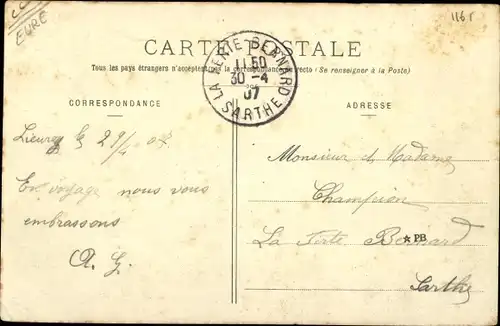 EURE
1161
CARTE POSTALE
Tous les pays étrangers n'acceptent pas la correspondance au recto (Se renseigner à la Poste)
LA FERTE-BERNARD
11 50
30 -4
07
SARTHE
CORRESPONDANCE
Lieurey le 29/4 07
En voyage nous vous
embrassons
A. G.
ADRESSE
Monsieur et Madame
Champion
La Ferté Bernard
PB
Sarthe